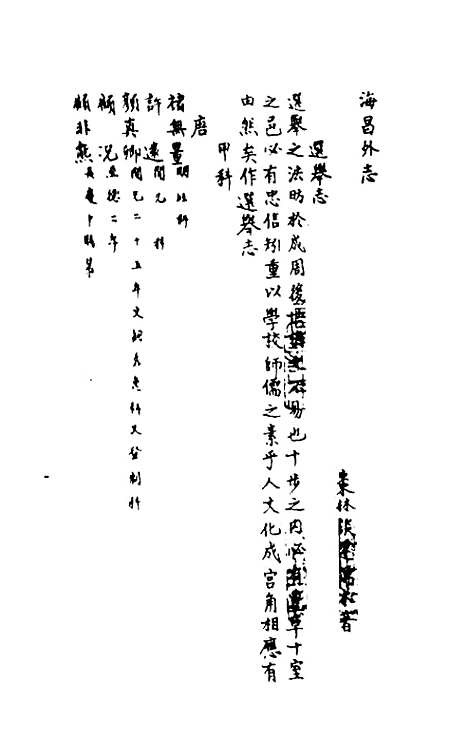 海昌外志
棗林談 著
選舉志
選舉之法昉於成周後 易也十步之内必有 草十室
之邑必有忠信矧重以學校師儒之素乎人文化成宫角相應有
由然矣作選舉志
甲科
唐
褚無量明經科
許遠開元 科
顔真卿開元二十五年文詞秀 科又登制科
顧况至德二年
顧非熊長慶中 第